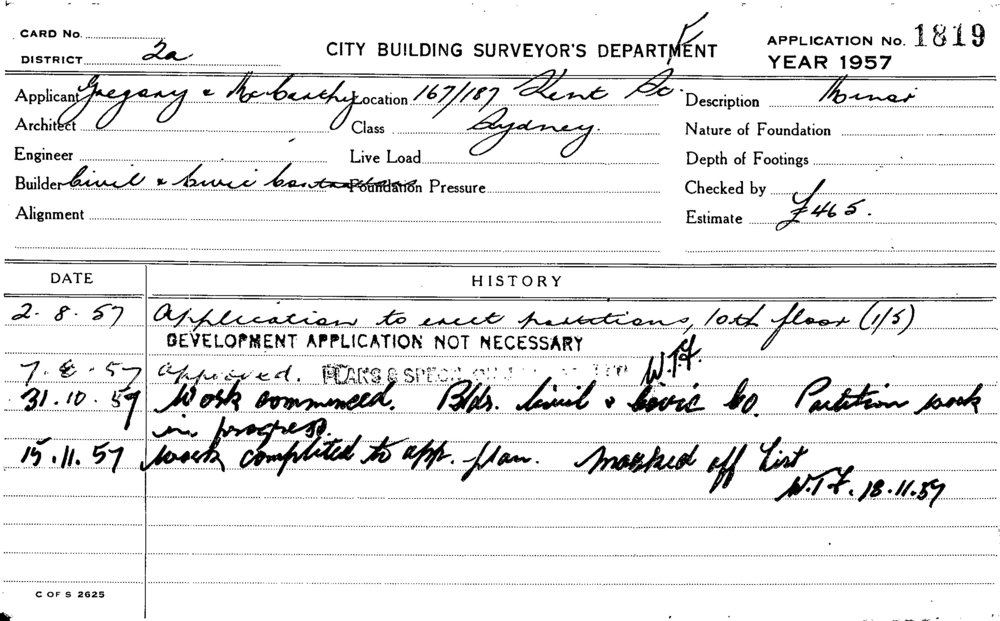 CARD No.
CITY BUILDING SURVEYOR'S DEPARTMENT
APPLICATION No. 1819
DISTRICT 2a
YEAR 1957
Applicant Gregory & McCarthy Location 167/187 Kent St. Description Minor
Architect Class Sydney. Nature of Foundation
Engineer Live Load Depth of Footings
Builder Civil & Civic Contractors Foundation Pressure Checked by
Alignment Estimate £465.
DATE HISTORY
2.8.57 Application to erect partitions, 10th floor (1/5)
DEVELOPMENT APPLICATION NOT NECESSARY
7.8.57 Approved. PLANS & W.T.F.
31.10.57 Work commenced. Bldr. Civil & Civic Co. Partition work
in progress.
15.11.57 Work completed to app. plan. Marked off List
W.T.F. 18.11.57
C OF S 2625